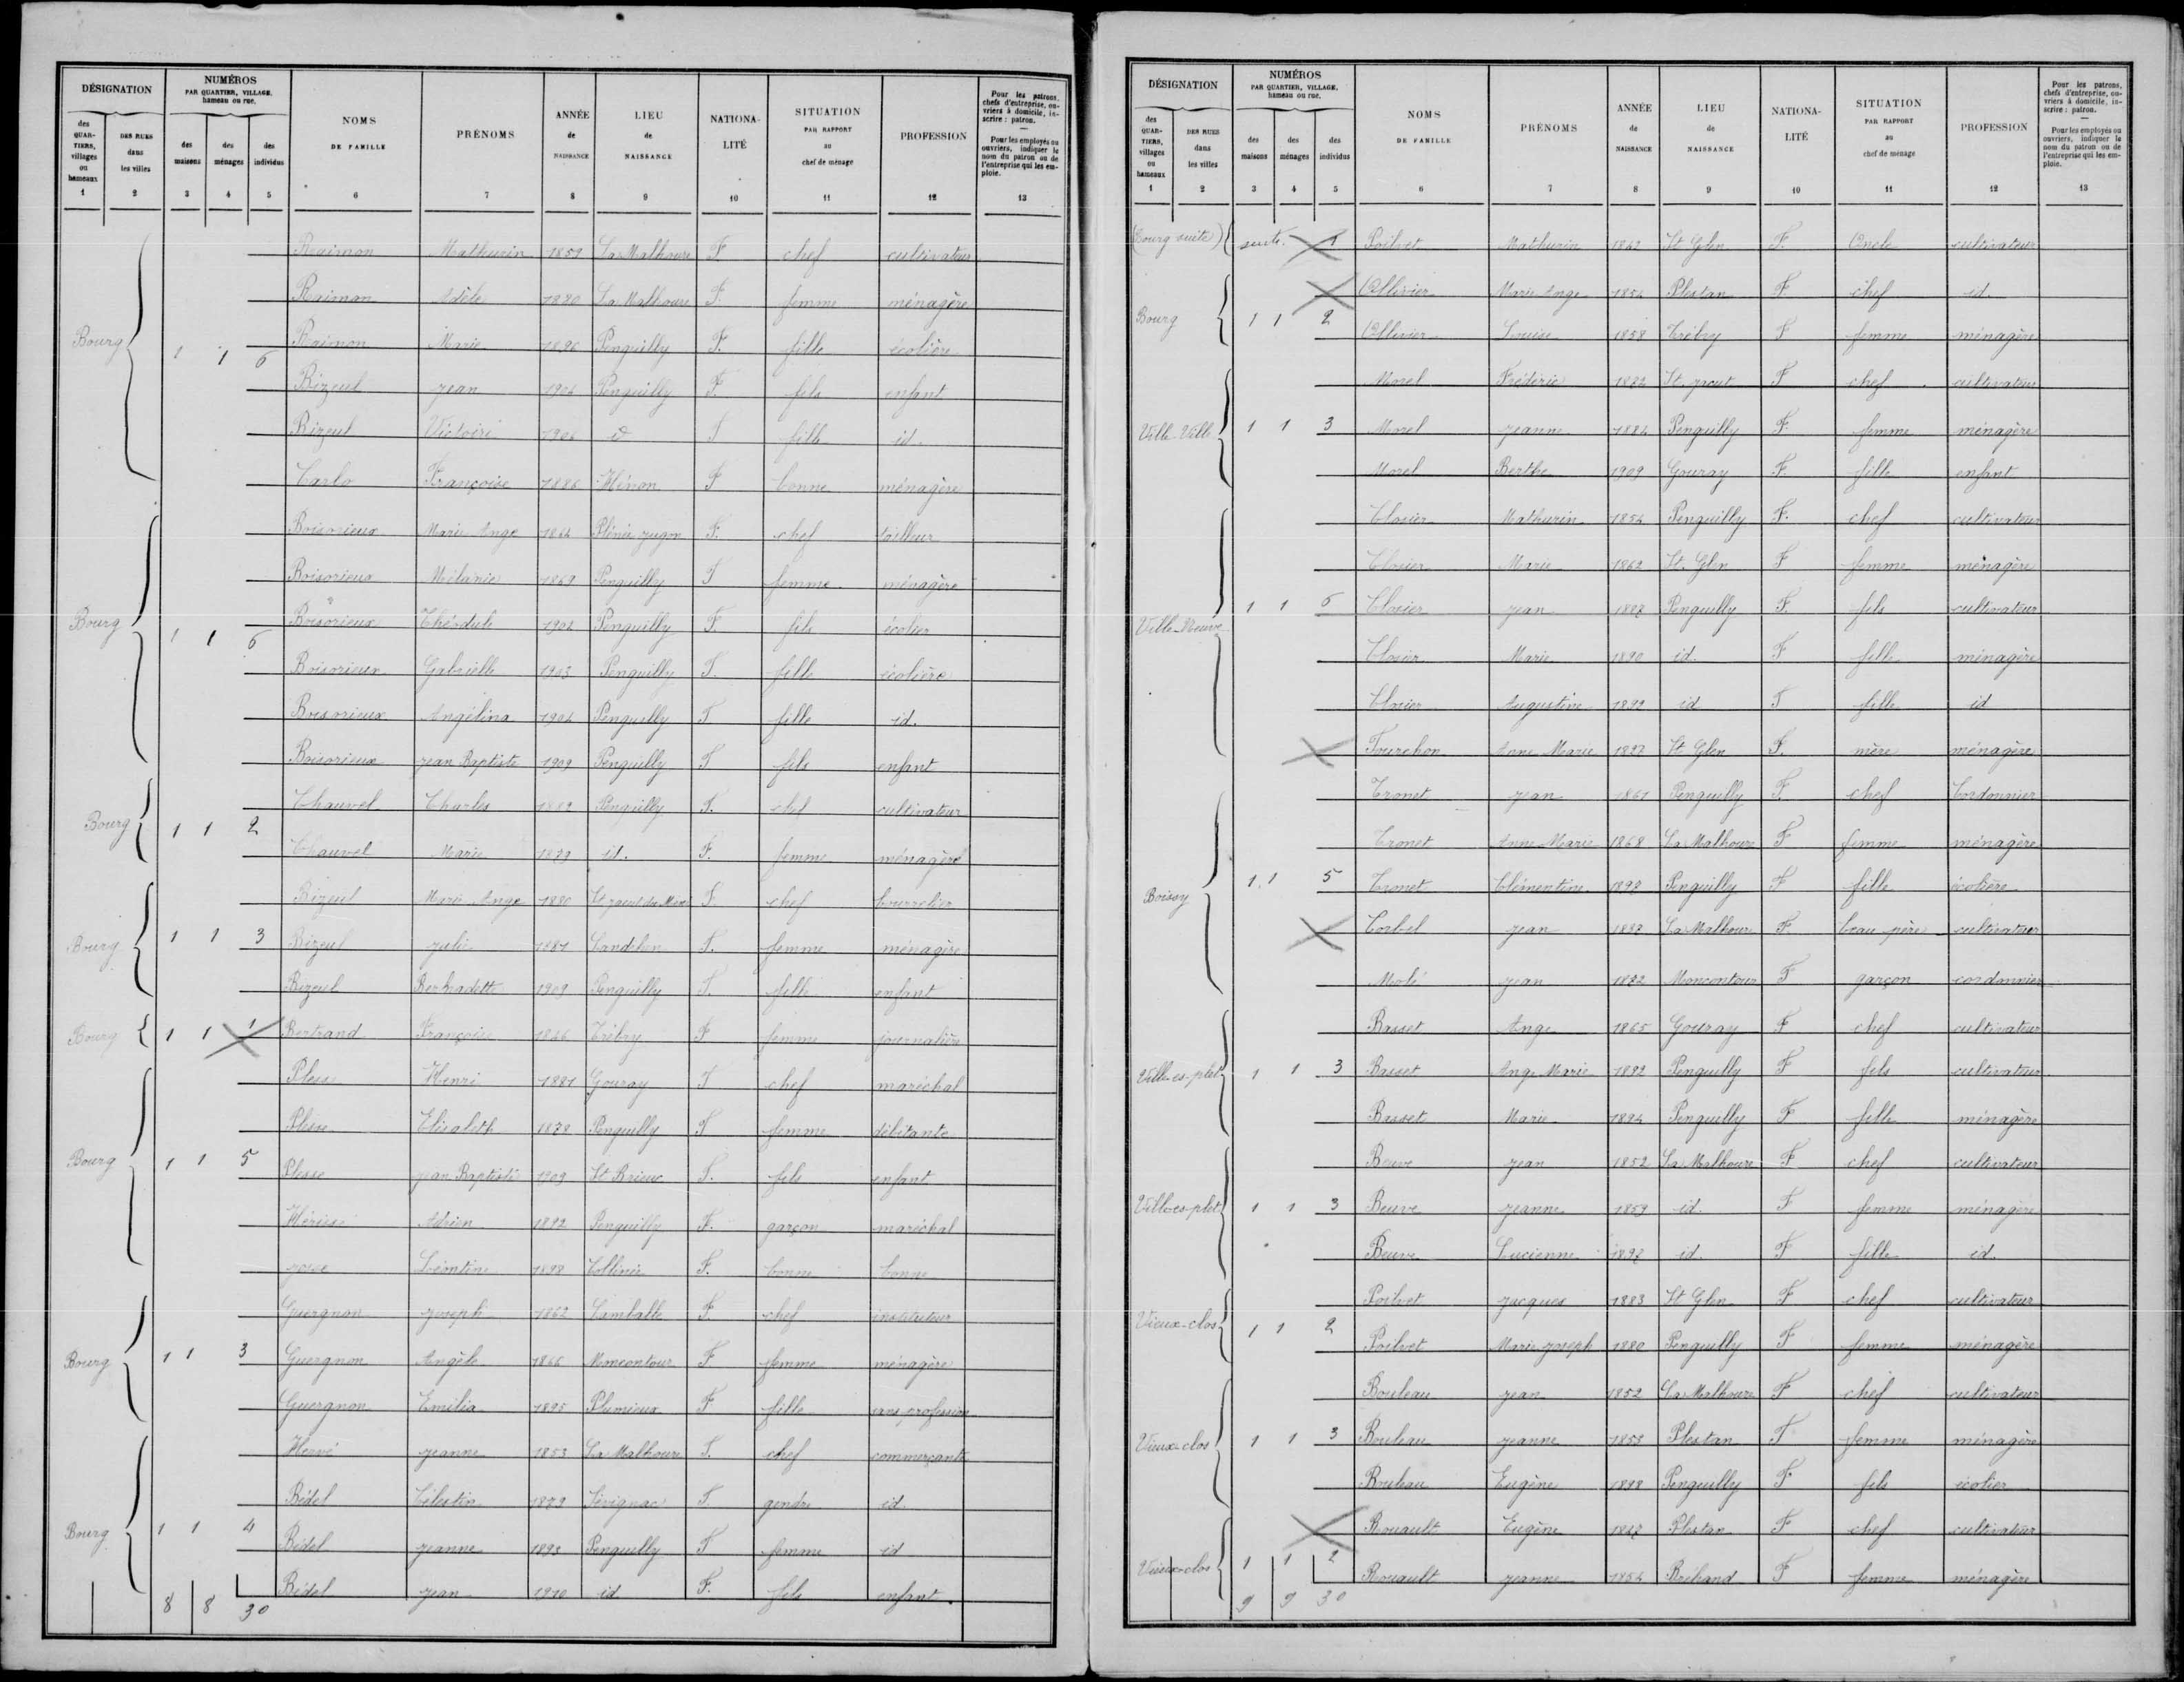 DÉSIGNATION
NUMÉROS
PAR QUARTIER, VILLAGE, hameau ou rue.
des QUARTIERS, villages ou hameaux
DES RUES dans les villes
des maisons
des ménages
des individus
NOMS DE FAMILLE
PRÉNOMS
ANNÉE de NAISSANCE
LIEU de NAISSANCE
NATIONALITÉ
SITUATION PAR RAPPORT au chef de ménage
PROFESSION
Pour les patrons, chefs d'entreprise, ouvriers à domicile, inscrire : patron.
Pour les employés ou ouvriers, indiquer le nom du patron ou de l'entreprise qui les emploie.
1 2 3 4 5 6 7 8 9 10 11 12 13
Raimon Mathurin 1859 La Malhoure F chef cultivateur
Raimon Adèle 1880 La Malhoure F. femme ménagère
Bourg 1 1 6 Raimon Marie 1896 Penguilly F. fille écolière
Bizeul jean 1904 Penguilly F. fils enfant
Bizeul Victoire 1906 id F fille id.
Carlo Françoise 1886 Hénon F bonne ménagère
Boisorieux Marie Ange 1864 Plénée jugon F. chef tailleur
Boisorieux Mélanie 1869 Penguilly F femme ménagère
Bourg 1 1 6 Boisorieux Théodule 1902 Penguilly F. fils écolier
Boisorieux Gabrielle 1903 Penguilly F. fille écolière
Boisorieux Angélina 1904 Penguilly F fille id.
Boisorieux jean Baptiste 1909 Penguilly F fils enfant
Bourg 1 1 2 Chauvel Charles 1882 Penguilly F. chef cultivateur
Chauvel Marie 1879 id. F. femme ménagère
Bizeul Marie Ange 1880 St jacut du Mené F. chef bourrelier
Bourg 1 1 3 Bizeul julie 1881 Landéhen F. femme ménagère
Bizeul Bernadette 1909 Penguilly F. fille enfant
Bourg 1 1 1 Bertrand Françoise 1846 Trébry F femme journalière
Plesse Henri 1881 Gouray F chef maréchal
Plesse Elisabeth 1878 Penguilly F femme débitante
Bourg 1 1 5 Plesse jean Baptiste 1909 St Brieuc F. fils enfant
Adrien 1892 Penguilly F. garçon maréchal
josse Léontine 1898 Collinée F. bonne bonne
Guergnon joseph 1862 Lamballe F. chef instituteur
Bourg 1 1 3 Guergnon Angèle 1866 Moncontour F femme ménagère
Guergnon Emilia 1895 Plumieux F fille sans profession
Hervé jeanne 1853 La Malhoure F. chef commerçante
Bédel Célestin 1879 Sévignac F. gendre id
Bourg 1 1 4 Bédel jeanne 1893 Penguilly F femme id
Bédel jean 1910 id F. fils enfant
8 8 30
DÉSIGNATION
NUMÉROS
PAR QUARTIER, VILLAGE, hameau ou rue.
des QUARTIERS, villages ou hameaux
DES RUES dans les villes
des maisons
des ménages
des individus
NOMS DE FAMILLE
PRÉNOMS
ANNÉE de NAISSANCE
LIEU de NAISSANCE
NATIONALITÉ
SITUATION PAR RAPPORT au chef de ménage
PROFESSION
Pour les patrons, chefs d'entreprise, ouvriers à domicile, inscrire : patron.
Pour les employés ou ouvriers, indiquer le nom du patron ou de l'entreprise qui les emploie.
1 2 3 4 5 6 7 8 9 10 11 12 13
(Bourg suite) suite. 1 Poilvet Mathurin 1842 St Glen F. Oncle cultivateur
Ollivier Marie Ange 1854 Plestan F. chef id.
Bourg 1 1 2 Ollivier Louise 1858 Trébry F femme ménagère
Morel Frédéric 1882 St. jacut F chef cultivateur
Ville Ville 1 1 3 Morel jeanne 1884 Penguilly F. femme ménagère
Morel Berthe 1909 Gouray F. fille enfant
Closier Mathurin 1854 Penguilly F. chef cultivateur
Closier Marie 1862 St. Glen F femme ménagère
Ville-Neuve 1 1 6 Closier jean 1888 Penguilly F. fils cultivateur
Closier Marie 1890 id. F fille ménagère
Closier Augustine 1892 id F fille id
Fourchon Anne Marie 1827 St Glen F. mère ménagère
Tronet jean 1861 Penguilly F. chef Cordonnier
Tronet Anne-Marie 1868 La Malhoure F femme ménagère
Boissy 1 1 5 Tronet Clémentine 1898 Penguilly F fille écolière
Corbel jean 1837 La Malhoure F beau père cultivateur
Molé jean 1892 Moncontour F garçon cordonnier
Basset Ange 1865 Gouray F chef cultivateur
Ville-es-plet 1 1 3 Basset Ange Marie 1892 Penguilly F fils cultivateur
Basset Marie 1894 Penguilly F fille ménagère
Beuve jean 1852 La Malhoure F chef cultivateur
Ville-es-plet 1 1 3 Beuve jeanne 1859 id. F femme ménagère
Beuve Lucienne 1898 id. F fille id.
Poilvet jacques 1883 St Glen F chef cultivateur
Vieux-clos 1 1 2 Poilvet Marie joseph 1880 Penguilly F femme ménagère
Bouleau jean 1852 La Malhoure F chef cultivateur
Vieux-clos 1 1 3 Bouleau jeanne 1855 Plestan F femme ménagère
Bouleau Eugène 1898 Penguilly F fils écolier
Rouault Eugène 1848 Plestan F chef cultivateur
Vieux-clos 1 1 2 Rouault jeanne 1854 Bréhand F femme ménagère
9 9 30